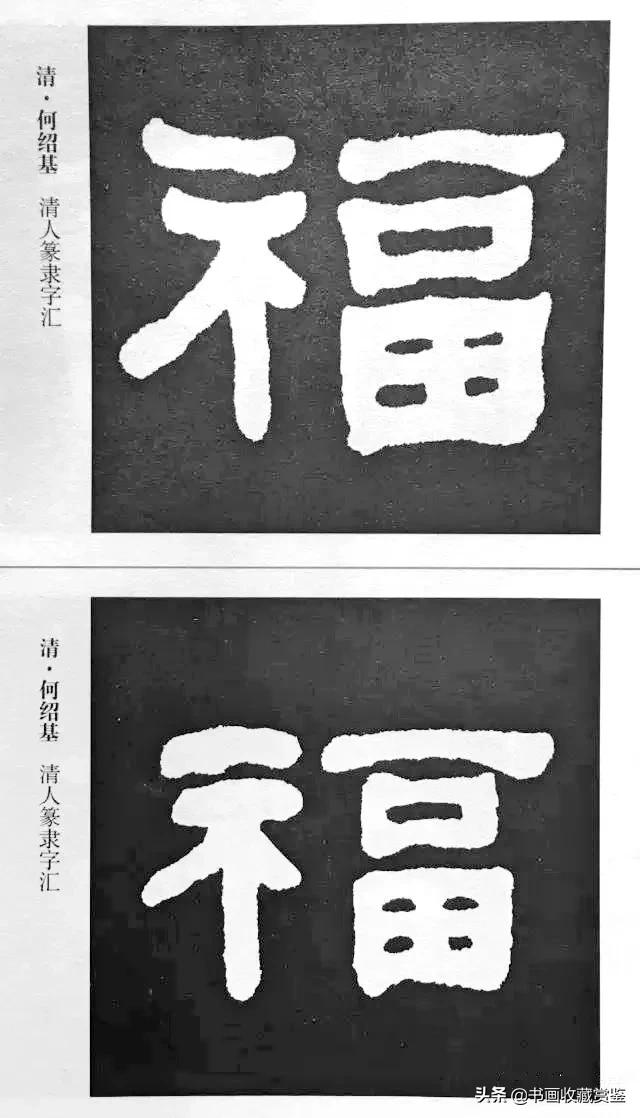 清·何绍基 清人篆隶字汇
福
清·何绍基 清人篆隶字汇
福
头条@书画收藏赏鉴